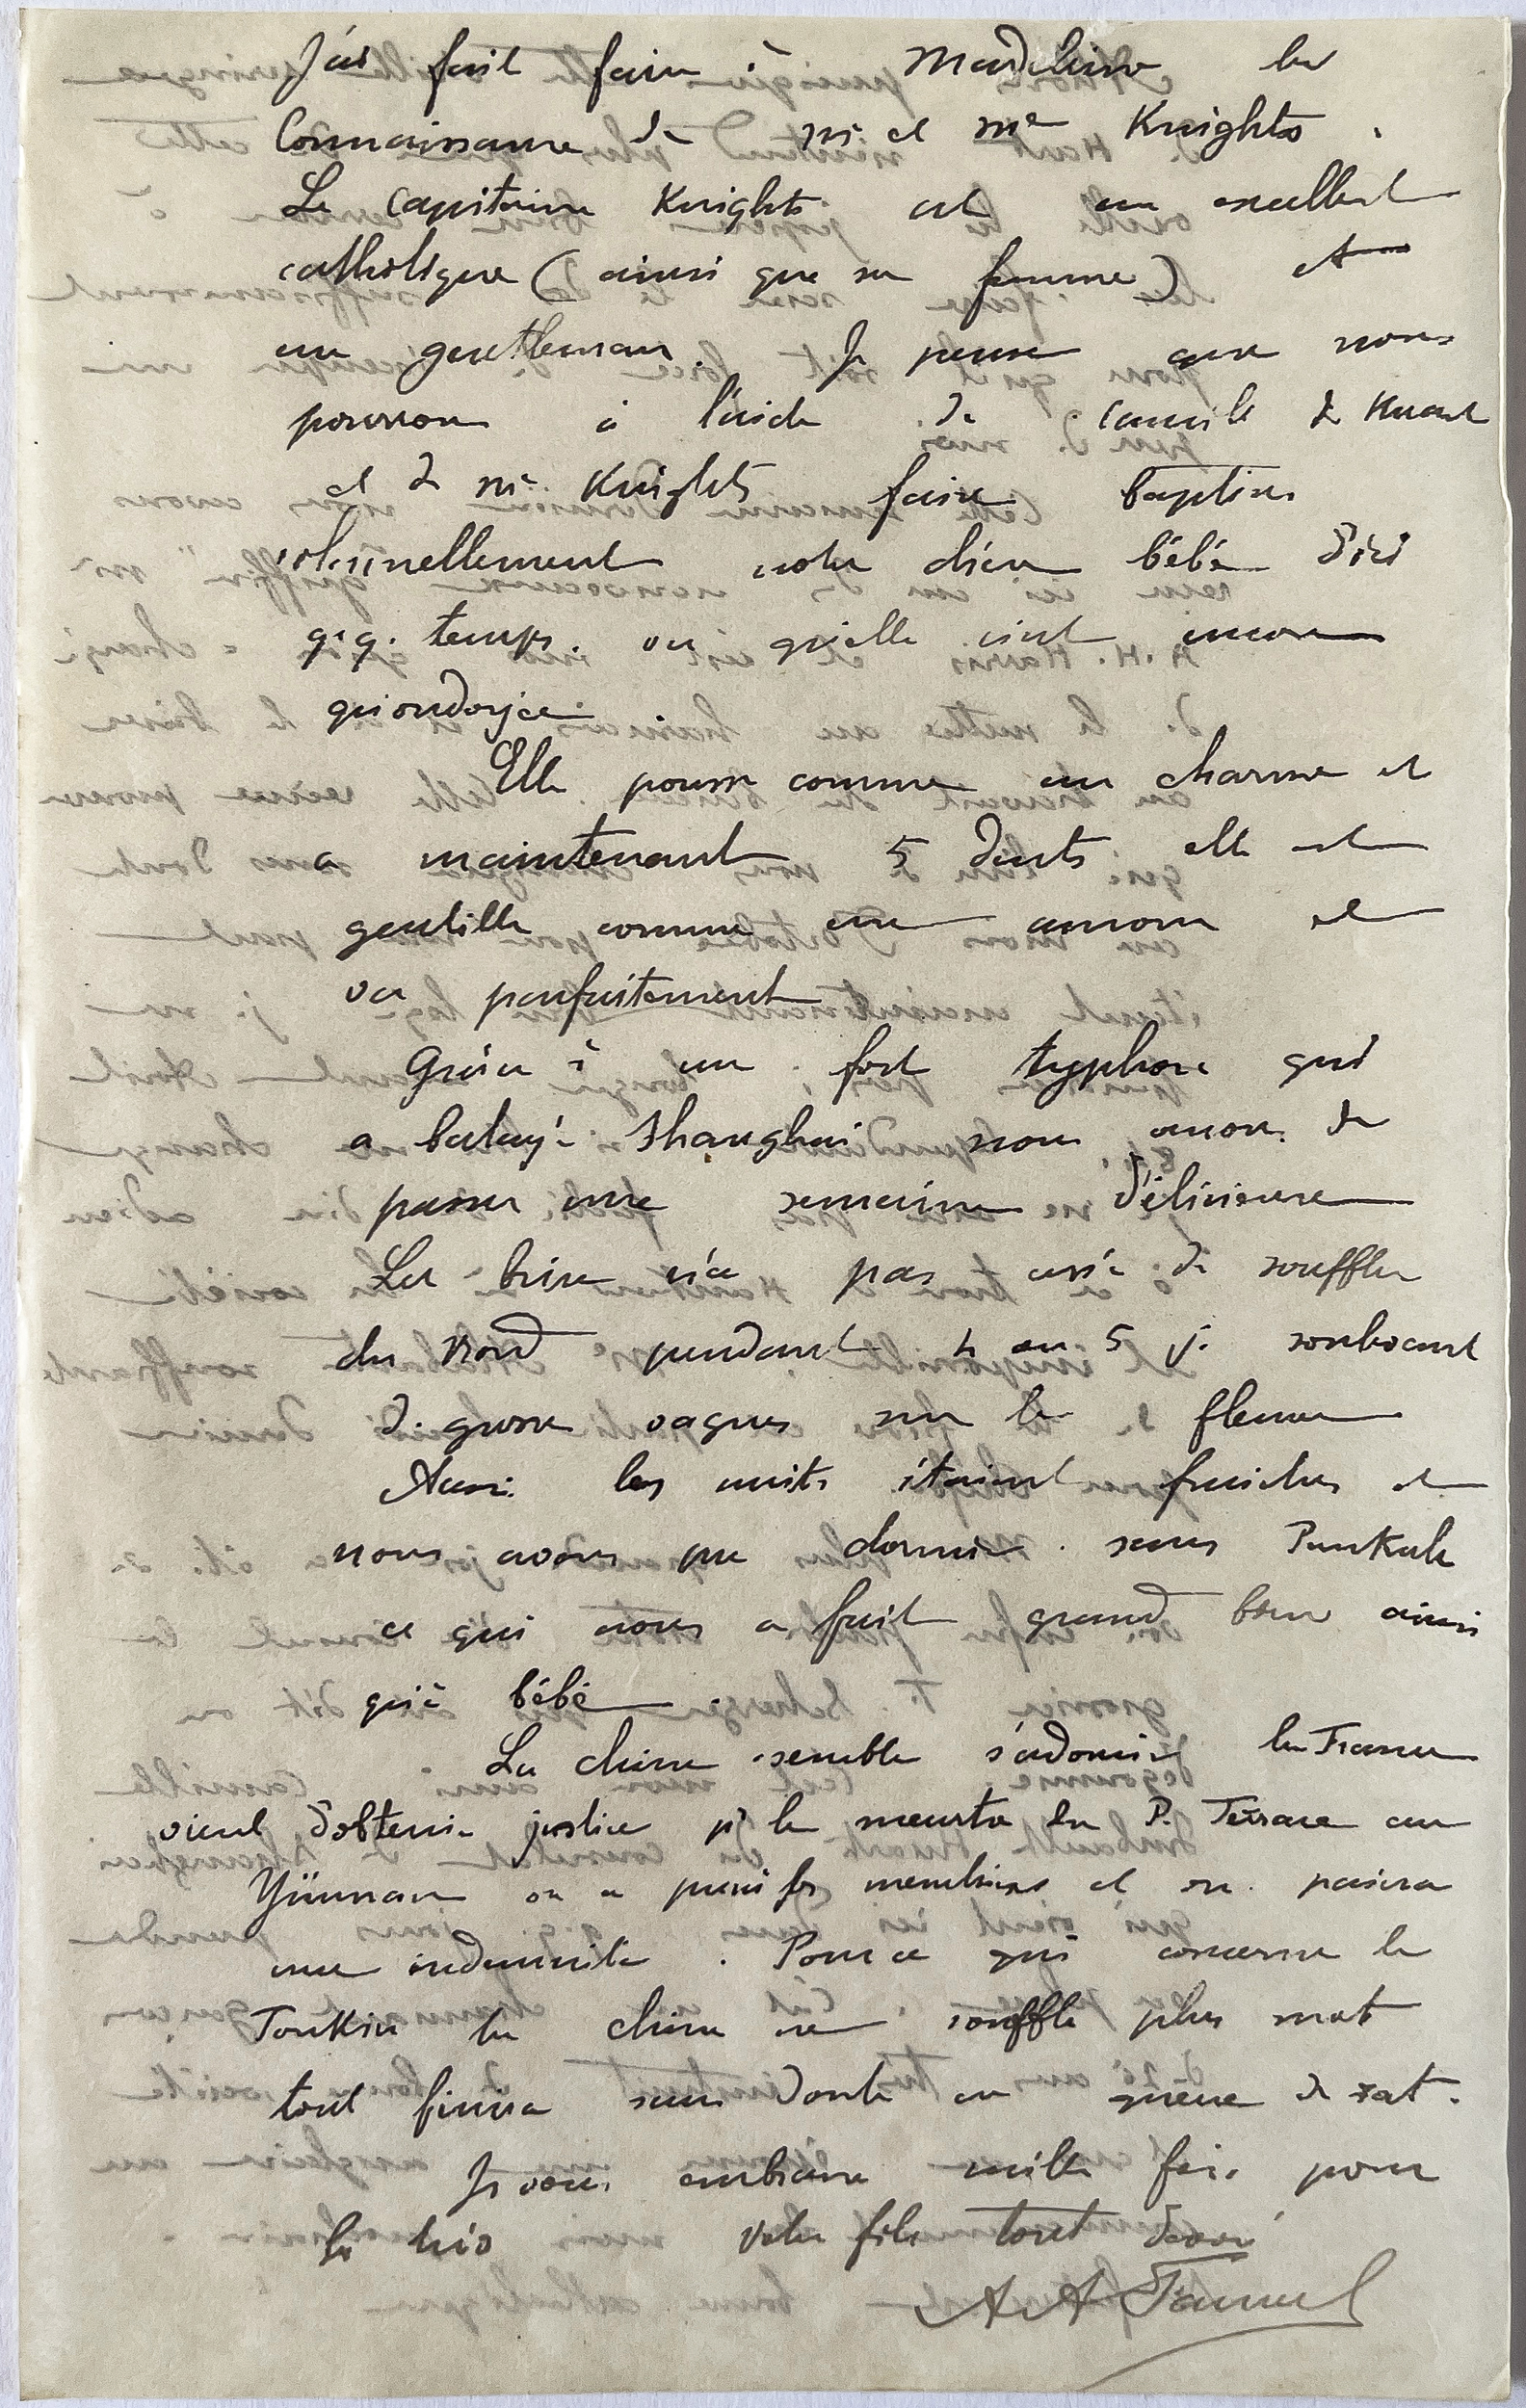 J'ai fait faire à Madeleine la
Connaissance de Mr et Mme Knights.
Le Capitaine Knights est un excellent
catholique (ainsi que sa femme) et
un gentleman. Je pense que nous
pourrons à l'aide de Camille I. Huart
et de Mr Knights faire baptiser
solennellement notre chère bébé d'ici
q.q. temps. vu qu'elle n'est encore
qu'ondoyée.
Elle pousse comme un charme et
a maintenant 5 dents elle est
gentille comme un amour et
va parfaitement
Grâce à un fort typhon qui
a balayé Shanghai nous avons de
passer une semaine délicieuse
La brise n'a pas cessé de souffler
du Nord pendant 4 ou 5 j. soulevant
de grosses vagues sur le fleuve
Aussi les nuits étaient fraîches et
nous avons pu dormir sans Punkah
ce qui nous a fait grand bien ainsi
qu'à bébé.
La Chine semble s'adoucir la France
vient d'obtenir justice pr le meurtre du P. Terrace au
Yünnan on a puni les meurtriers et on paiera
une indemnité. Pour ce qui concerne le
Tonkin la Chine ne souffle plus mot
tout finira sans doute en queue de rat.
Je vous embrasse mille fois pour
le trio Votre fils tout dévoué
A A Fauvel